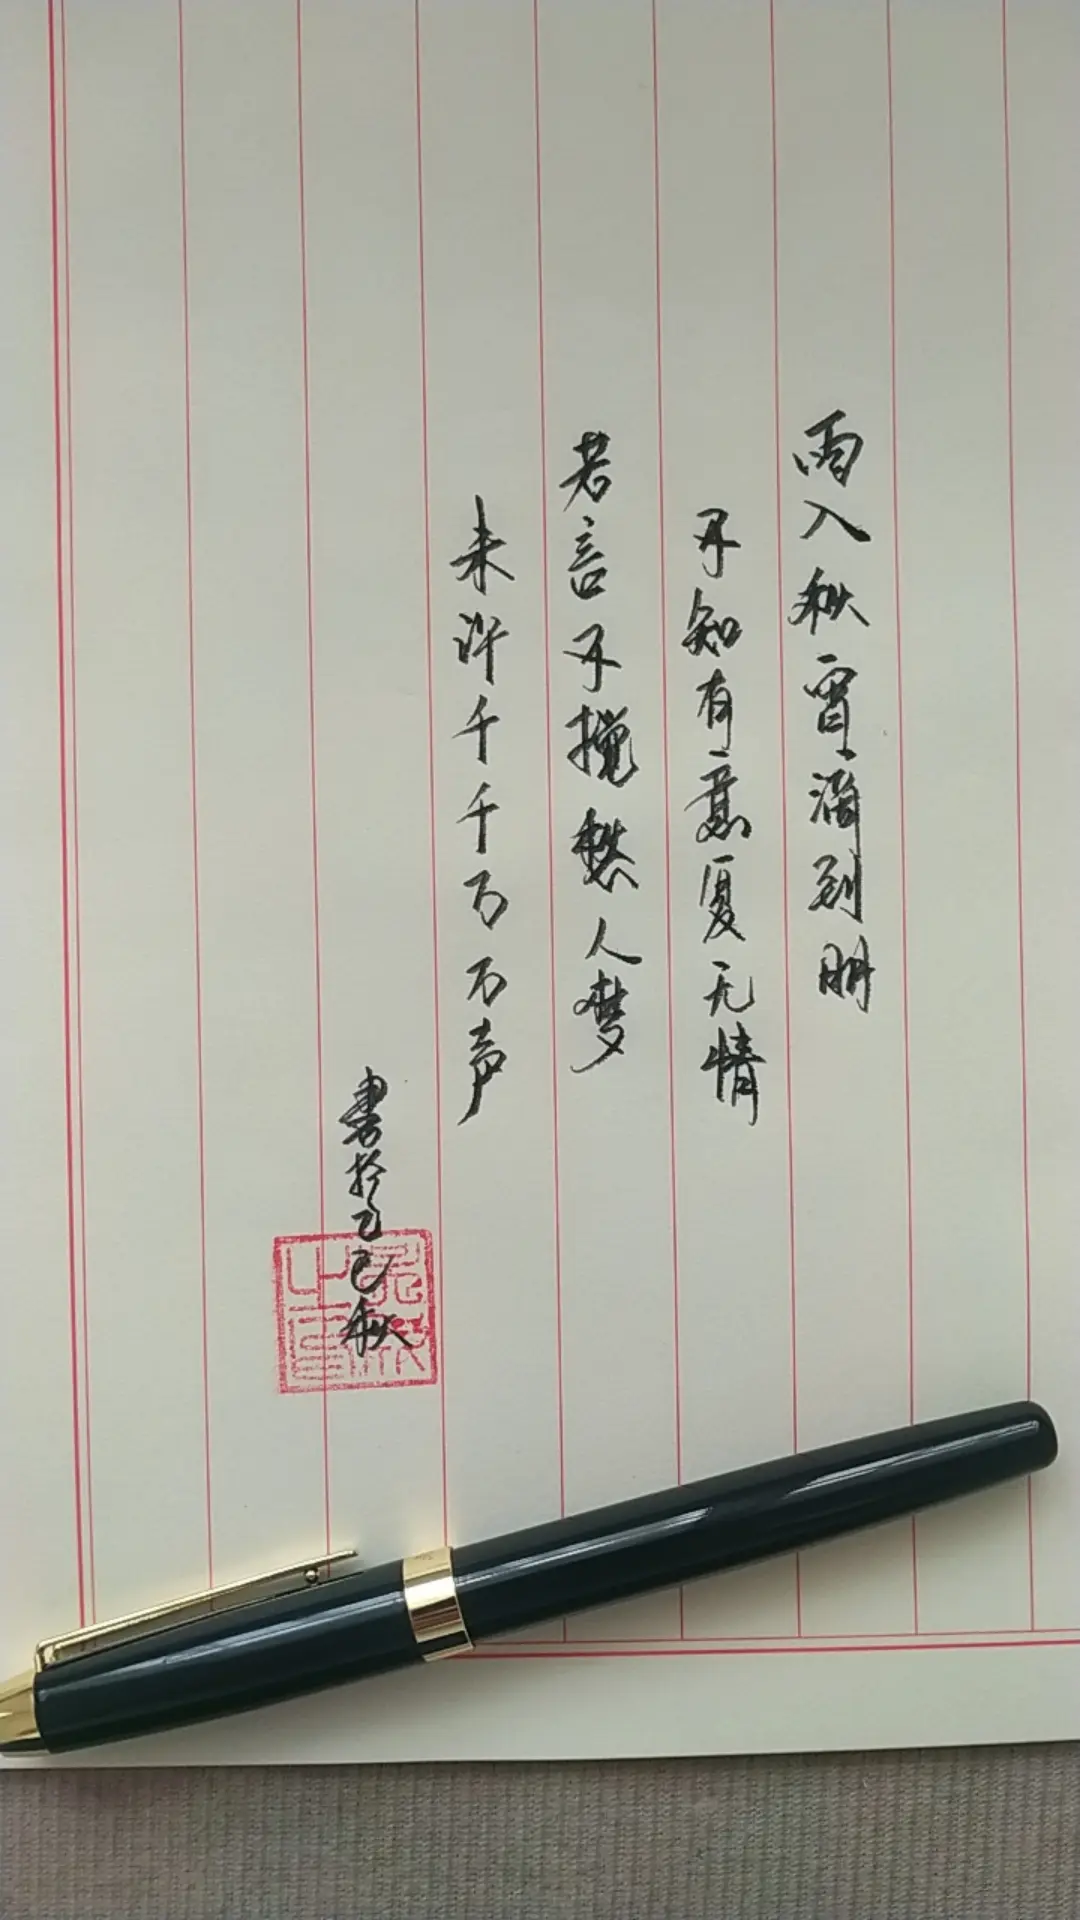 雨入秋宵滴到明
不知有意复无情
若言不搅愁人梦
未许千千万万声
書於乙巳秋